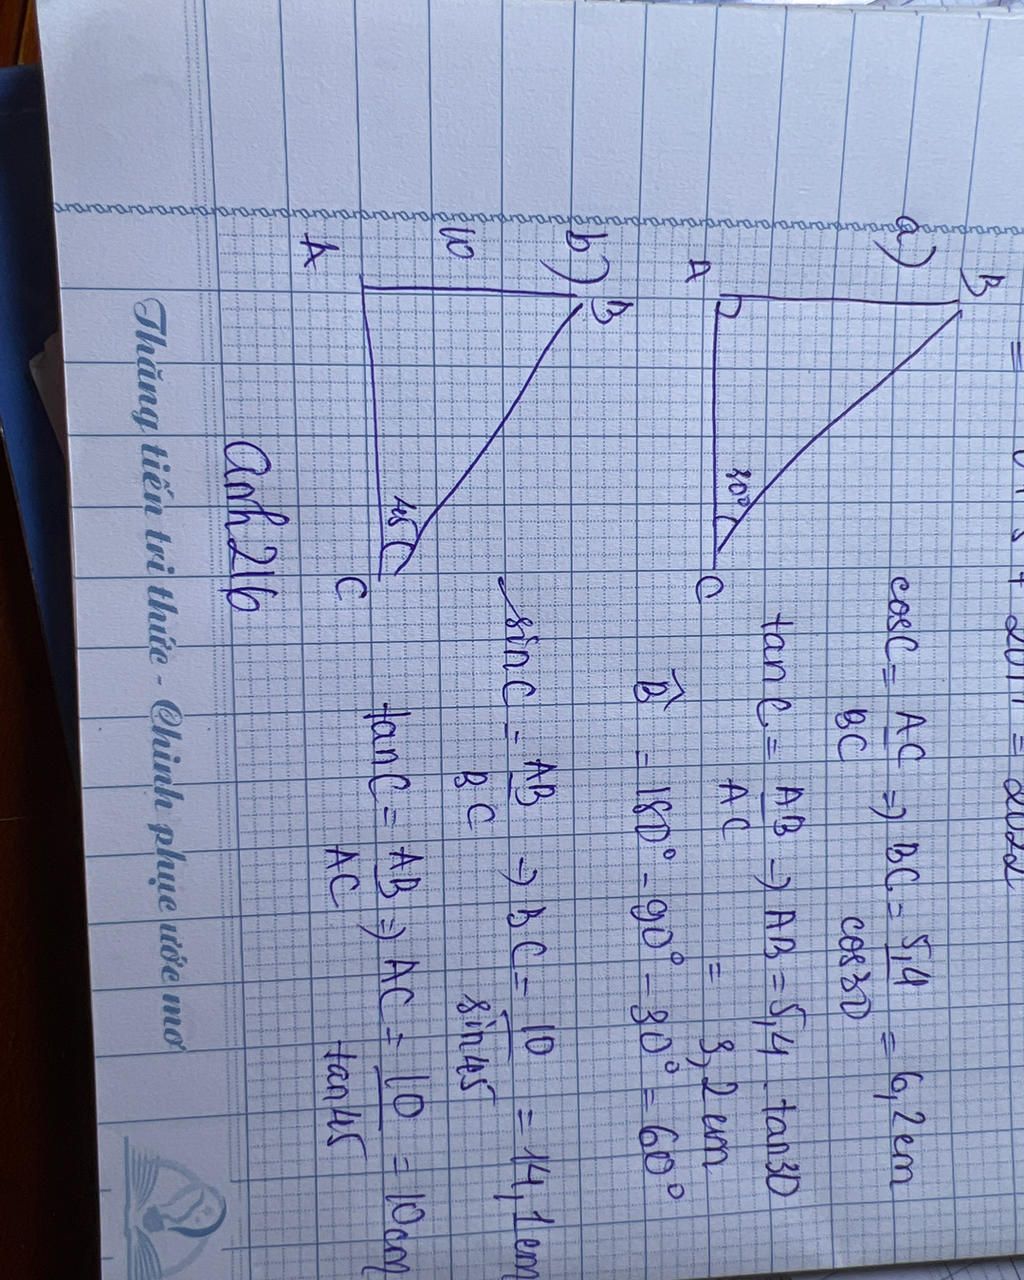 a)
B
A
30°
C
cosC = AC/BC => BC = 5,4/cos30 = 6,2cm
tanC = AB/AC => AB = 5,4 . tan30
= 3,2cm
B̂ = 180° - 90° - 30° = 60°
b)
B
10
A
45
C
sinC = AB/BC => BC = 10/sin45 = 14,1cm
tanC = AB/AC => AC = 10/tan45 = 10cm
anh216
Thăng tiến tri thức - Chinh phục ước mơ